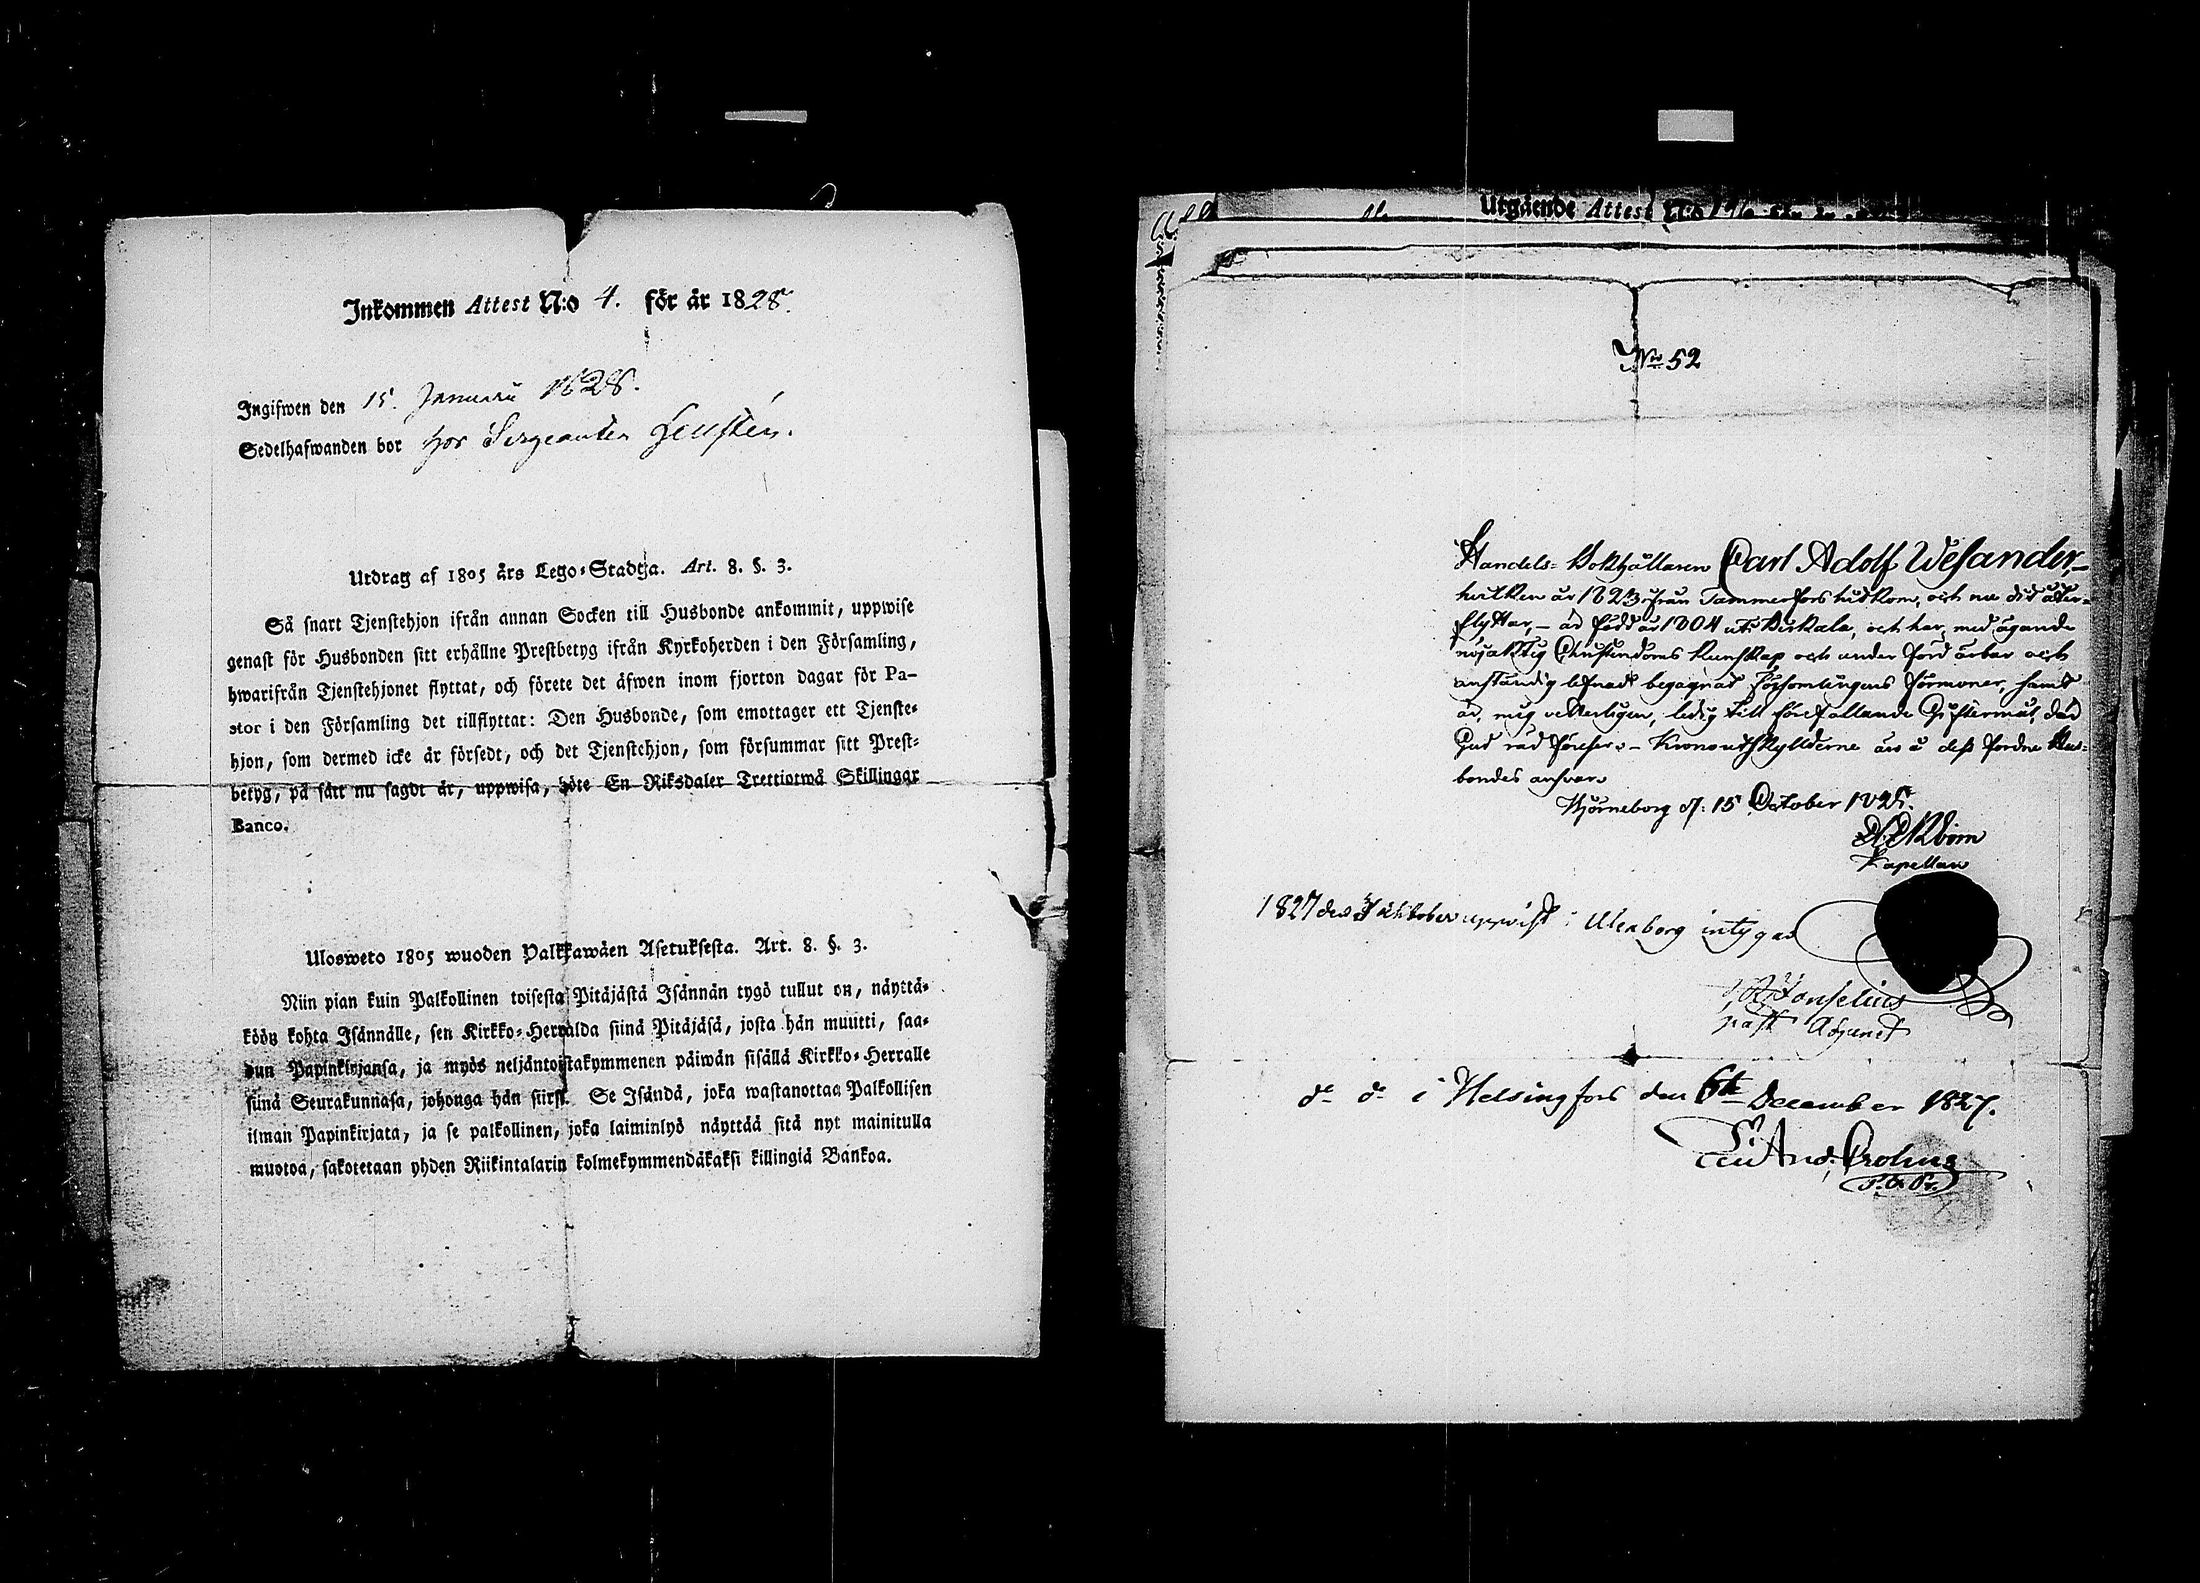 Inkommen Attest N:o 4. för år 1828.
Ingifwen den 15. Januarii 1828.
Sedelhafwanden bor hos Sergeanten Jensten.
Utdrag af 1805 års Lego-Stadga. Art. 8. §. 3.
Så snart Tjenstehjon ifrån annan Socken till Husbonde ankommit, uppwise
genast för Husbonden sitt erhållne Prestbetyg ifrån Kyrkoherden i den Församling,
hwarifrån Tjenstehjonet flyttat, och förete det äfwen inom fjorton dagar för Pa-
stor i den Församling det tillflyttat: Den Husbonde, som emottager ett Tjenste-
hjon, som dermed icke är försedt, och det Tjenstehjon, som försummar sitt Prest-
betyg, på sätt nu sagdt är, uppwisa, böte En Riksdaler Trettiotwå Skillingar
Banco.
Ulosweto 1805 wuoden Palkkawäen Asetuksesta. Art. 8. §. 3.
Niin pian kuin Palkollinen toisesta Pitäjästä Isännän tygö tullut on, näyttä-
köön kohta Isännälle, sen Kirkko-Herralda siinä Pitäjäsä, josta hän muutti, saa-
dun Papinkirjansa, ja myös neljäntoistakymmenen päiwän sisällä Kirkko-Herralle
siinä Seurakunnasa, johonga hän siirsi. Se Isändä, joka wastanottaa Palkollisen
ilman Papinkirjata, ja se palkollinen, joka laiminlyö näyttää sitä nyt mainitulla
muotoa, sakotetaan yhden Riikintalarin kolmekymmendäkaksi killingiä Bankoa.
Utgående Attest N:o
No 52
Handels-Bokhållaren Carl Adolf Wesander,
hvilken år 1823 ifrån Tammerfors hitkom, och nu dit åter-
flyttar, - är född år 1804 uti Birkala, och har, med ägande
nöjaktig Christendoms kunskap och under förd ärbar och
anständig lefnad begagnat Församlingens förmoner, samt
är, mig vetterligen, ledig till förefallande Giftermål, där
Gud råd föreser. - Kronoutskylderne äro å dess fördne Hus-
bondes ansvar.
Björneborg d: 15 October 182
Kapellan
1827 den October uppvist i Uleaborg intygar
Past Adjunct
do do i Helsingfors den 6te December 1827.
And. Crohns